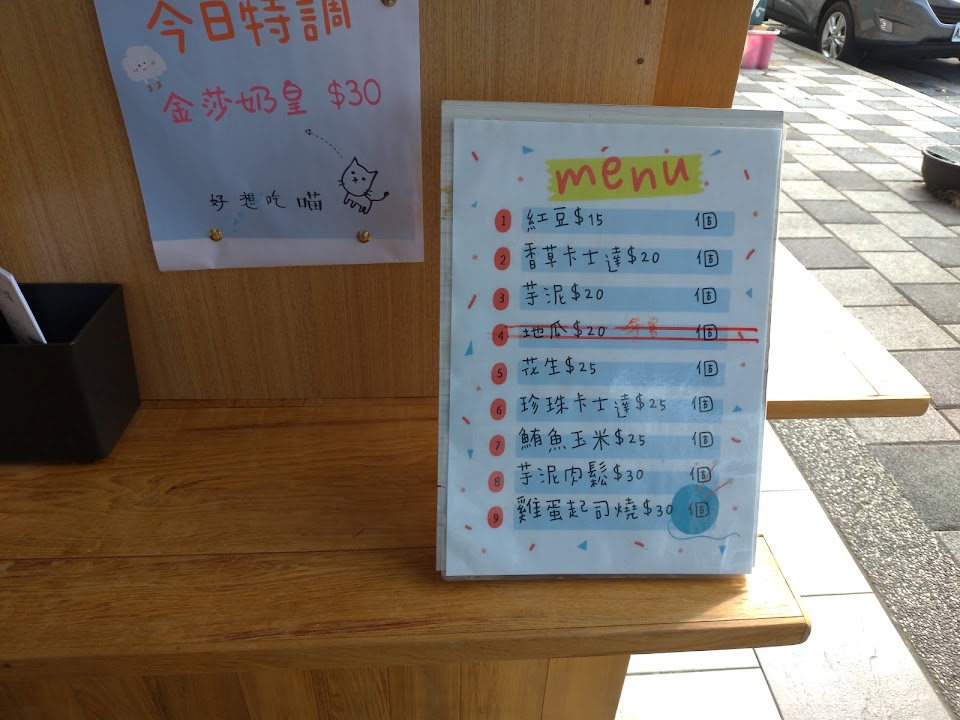 今日特調
金莎奶皇 $30
好想吃喵
menu
1 紅豆$15 個
2 香草卡士達$20 個
3 芋泥$20 個
4 地瓜$20 個
5 花生$25 個
6 珍珠卡士達$25 個
7 鮪魚玉米$25 個
8 芋泥肉鬆$30 個
9 雞蛋起司燒$30 個